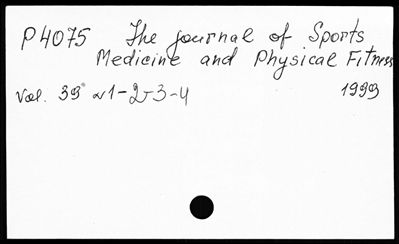 P4075 The journal of Sports
Medicine and Physical Fitness
Vol. 39° N1-2-3-4 1999